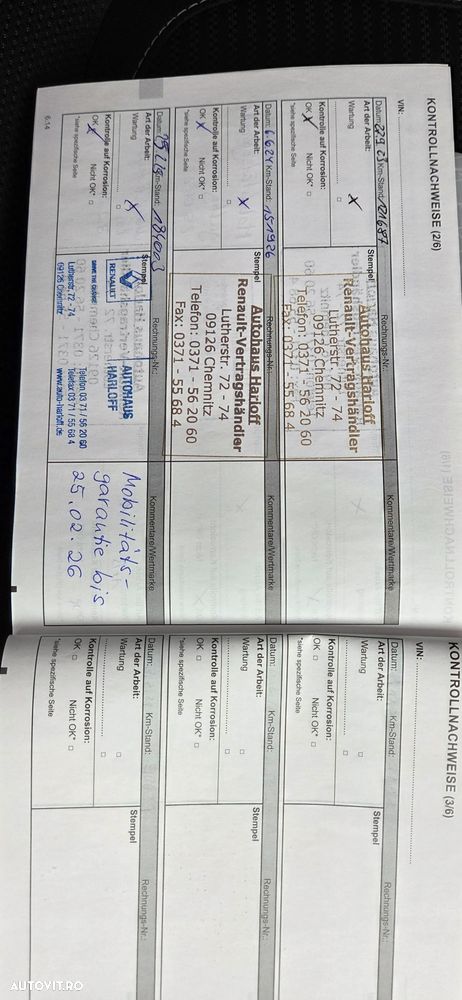 KONTROLLNACHWEISE (2/6)
VIN:
Datum: 22.9.23 Km-Stand: 121687
Rechnungs-Nr.:
Kommentare/Wertmarke
Art der Arbeit:
Stempel
Wartung
X
Kontrolle auf Korrosion:
OK X Nicht OK*
*siehe spezifische Seite
Autohaus Harloff
Renault-Vertragshändler
Lutherstr. 72 - 74
09126 Chemnitz
Telefon: 0371 - 56 20 60
Fax: 0371 - 55 68 4
Datum: 6.6.24 Km-Stand: 151926
Rechnungs-Nr.:
Kommentare/Wertmarke
Art der Arbeit:
Stempel
Wartung
X
Kontrolle auf Korrosion:
OK X Nicht OK*
*siehe spezifische Seite
Autohaus Harloff
Renault-Vertragshändler
Lutherstr. 72 - 74
09126 Chemnitz
Telefon: 0371 - 56 20 60
Fax: 0371 - 55 68 4
Datum: Km-Stand: 184003
Rechnungs-Nr.:
Kommentare/Wertmarke
Art der Arbeit:
Stempel
Wartung
X
Kontrolle auf Korrosion:
OK X Nicht OK*
*siehe spezifische Seite
RENAULT
AUTOHAUS
HARLOFF
Lutherstr. 72 - 74 Telefon 03 71 / 56 20 60
09126 Chemnitz Telefax 03 71 / 55 68 4
www.auto-harloff.de
Mobilitäts-
garantie bis
25.02.26
6.14
KONTROLLNACHWEISE (3/6)
VIN:
Datum: Km-Stand:
Rechnungs-Nr.:
Art der Arbeit:
Stempel
Wartung
Kontrolle auf Korrosion:
OK Nicht OK*
*siehe spezifische Seite
Datum: Km-Stand:
Rechnungs-Nr.:
Art der Arbeit:
Stempel
Wartung
Kontrolle auf Korrosion:
OK Nicht OK*
*siehe spezifische Seite
Datum: Km-Stand:
Rechnungs-Nr.:
Art der Arbeit:
Stempel
Wartung
Kontrolle auf Korrosion:
OK Nicht OK*
*siehe spezifische Seite
AUTOVIT.RO